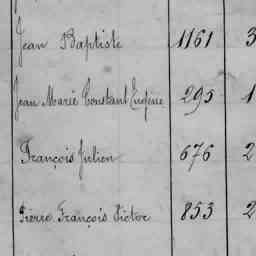 Jean Baptiste 1161 3
Jean Marie Constant Eugène 295 1
François Julien 676 2
Pierre François Victor 853 2